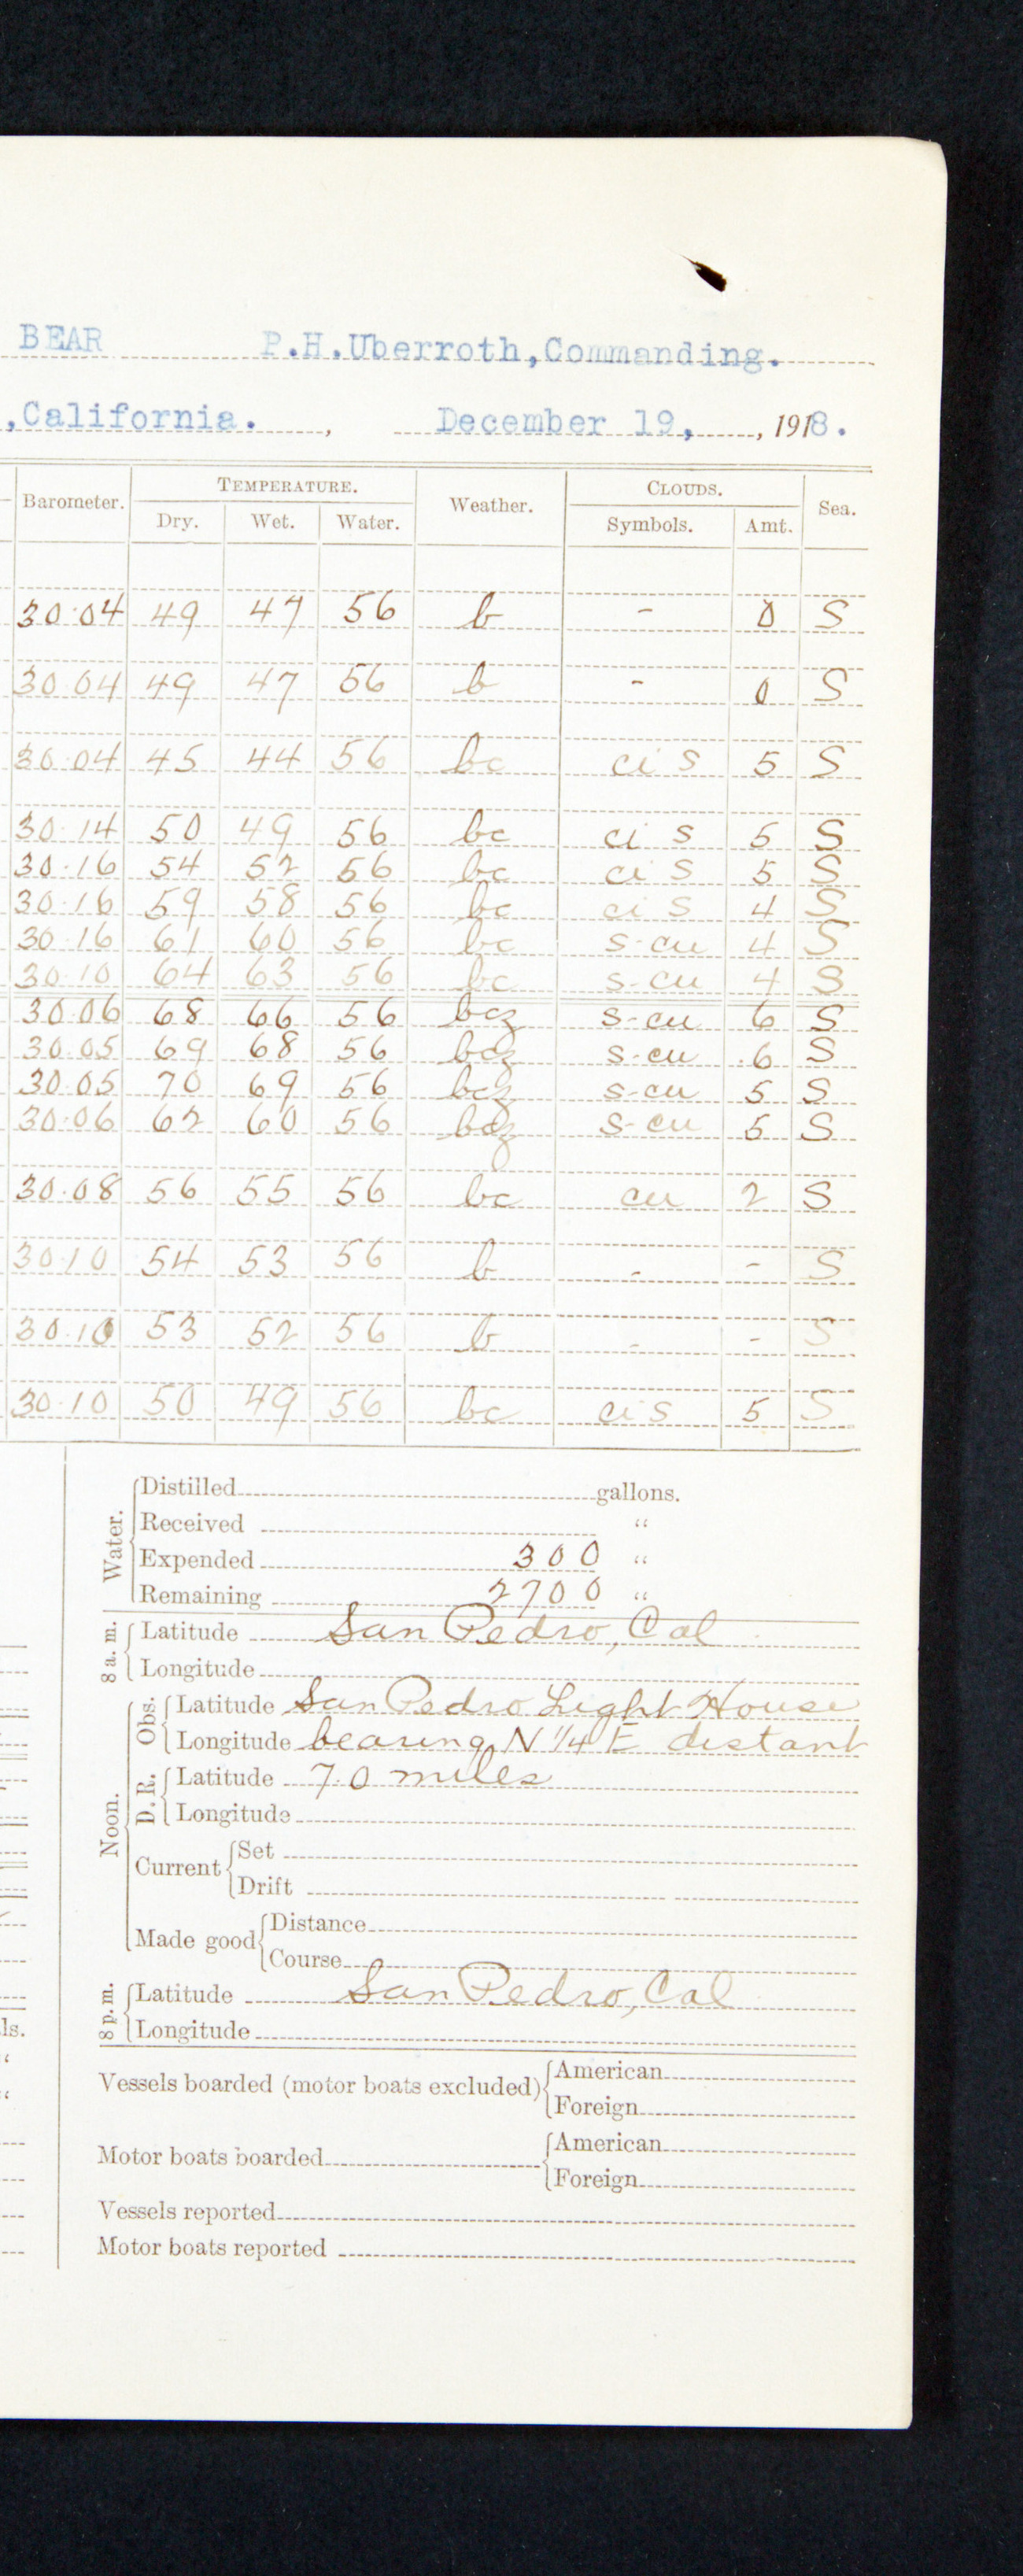 BEAR P.H.Uberroth, Commanding.
,California. , December 19, , 1918.
Barometer. TEMPERATURE. Weather. CLOUDS. Sea.
Dry. Wet. Water. Symbols. Amt.
30.04 49 47 56 b - 0 S
30.04 49 47 56 b - 0 S
30.04 45 44 56 bc ci s 5 S
30.14 50 49 56 bc ci s 5 S
30.16 54 52 56 bc ci s 5 S
30.16 59 58 56 bc ci s 4 S
30.16 61 60 56 bc s-cu 4 S
30.10 64 63 56 bc s-cu 4 S
30.06 68 66 56 bcz s-cu 6 S
30.05 69 68 56 bcz s-cu 6 S
30.05 70 69 56 bcz s-cu 5 S
30.06 62 60 56 bcz s-cu 5 S
30.08 56 55 56 bc cu 2 S
30.10 54 53 56 b - - S
30.10 53 52 56 b - - S
30.10 50 49 56 bc ci s 5 S
Water.
Distilled gallons.
Received "
Expended 300 "
Remaining 2700 "
8 a. m.
Latitude San Pedro, Cal
Longitude
Noon.
Obs.
Latitude San Pedro Light House
Longitude bearing N 1/4 E distant
D. R.
Latitude 7.0 miles
Longitude
Current
Set
Drift
Made good
Distance
Course
8 p. m.
Latitude San Pedro, Cal
Longitude
ls.
"
"
Vessels boarded (motor boats excluded)
American
Foreign
Motor boats boarded
American
Foreign
Vessels reported
Motor boats reported